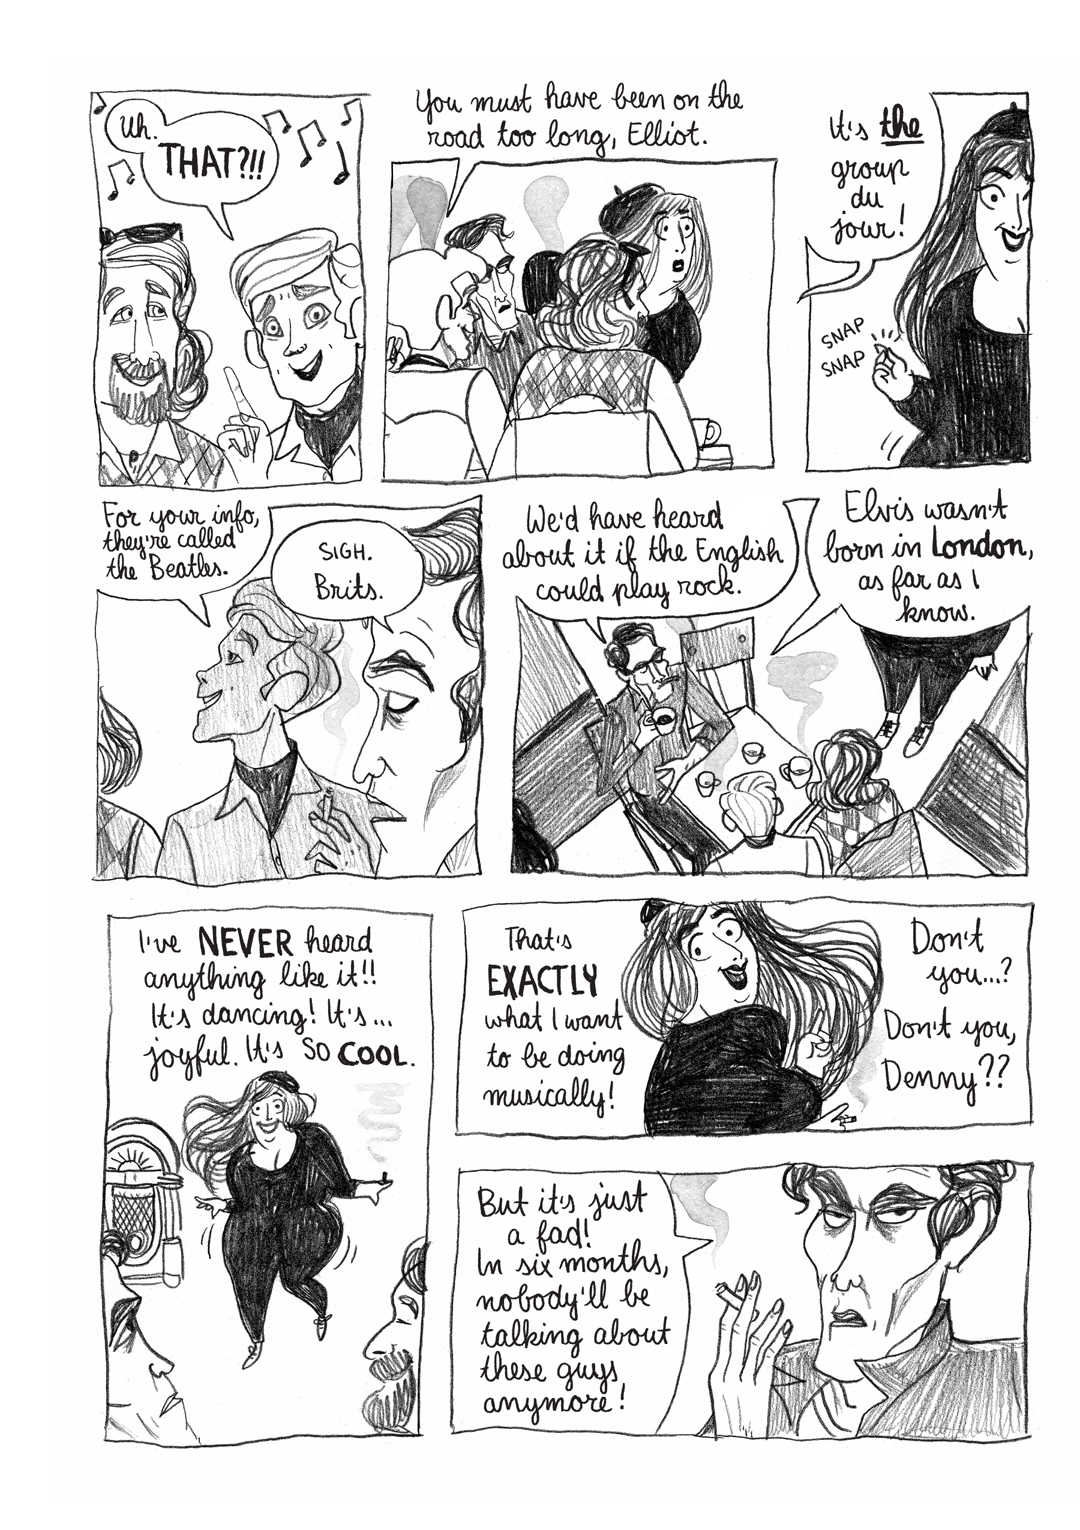 Uh.
THAT?!!
You must have been on the
road too long, Elliot.
It's the
group
du
jour!
SNAP
SNAP
For your info,
they're called
the Beatles.
SIGH.
Brits.
We'd have heard
about it if the English
could play rock.
Elvis wasn't
born in London,
as far as I
know.
I've NEVER heard
anything like it!!
It's dancing! It's...
joyful. It's SO COOL.
That's
EXACTLY
what I want
to be doing
musically!
Don't
you...?
Don't you,
Denny??
But it's just
a fad!
In six months,
nobody'll be
talking about
these guys
anymore!